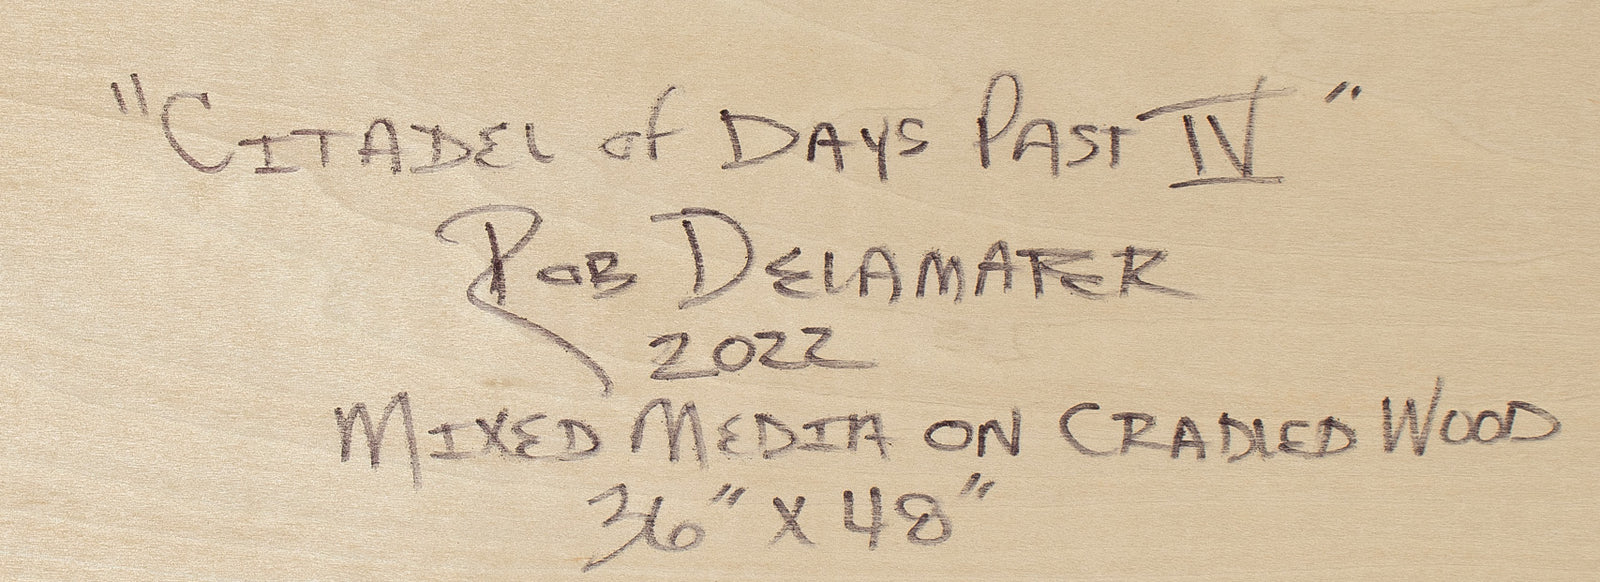 "Citadel of Days Past IV"
Rob Delamater
2022
Mixed Media on Cradled Wood
36" x 48"